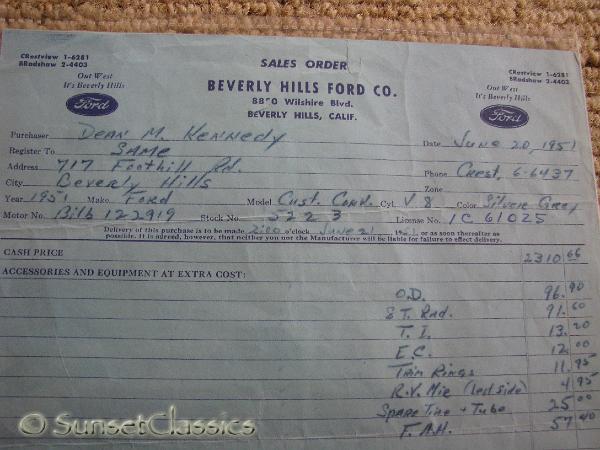 CRestview 1-6281
BRadshaw 2-4403
Out West
It's Beverly Hills
Ford
SALES ORDER
BEVERLY HILLS FORD CO.
8850 Wilshire Blvd.
BEVERLY HILLS, CALIF.
CRestview 1-6281
BRadshaw 2-4403
Out West
It's Beverly Hills
Ford
Purchaser Dean M. Kennedy Date June 20, 1951
Register To SAME
Address 717 Foothill Rd. Phone Crest. 6-6437
City Beverly Hills Zone
Year 1951 Make Ford Model Cust. Conv. Cyl. V.8 Color Silver Grey
Motor No. B1LB 122919 Stock No. 5223 License No. 1C 61025
Delivery of this purchase is to be made 2:00 o'clock June 21 1951 or as soon thereafter as
possible. It is agreed, however, that neither you nor the Manufacturer will be liable for failure to effect delivery.
CASH PRICE 2310.66
ACCESSORIES AND EQUIPMENT AT EXTRA COST:
O.D. 96.90
8 T. Rad. 91.60
T.I. 13.20
E.C. 12.00
Trim Rings 11.95
R.V. Mir (left side) 4.95
Spare Tire + Tube 25.00
F.A.H. 57.40
© SunsetClassics